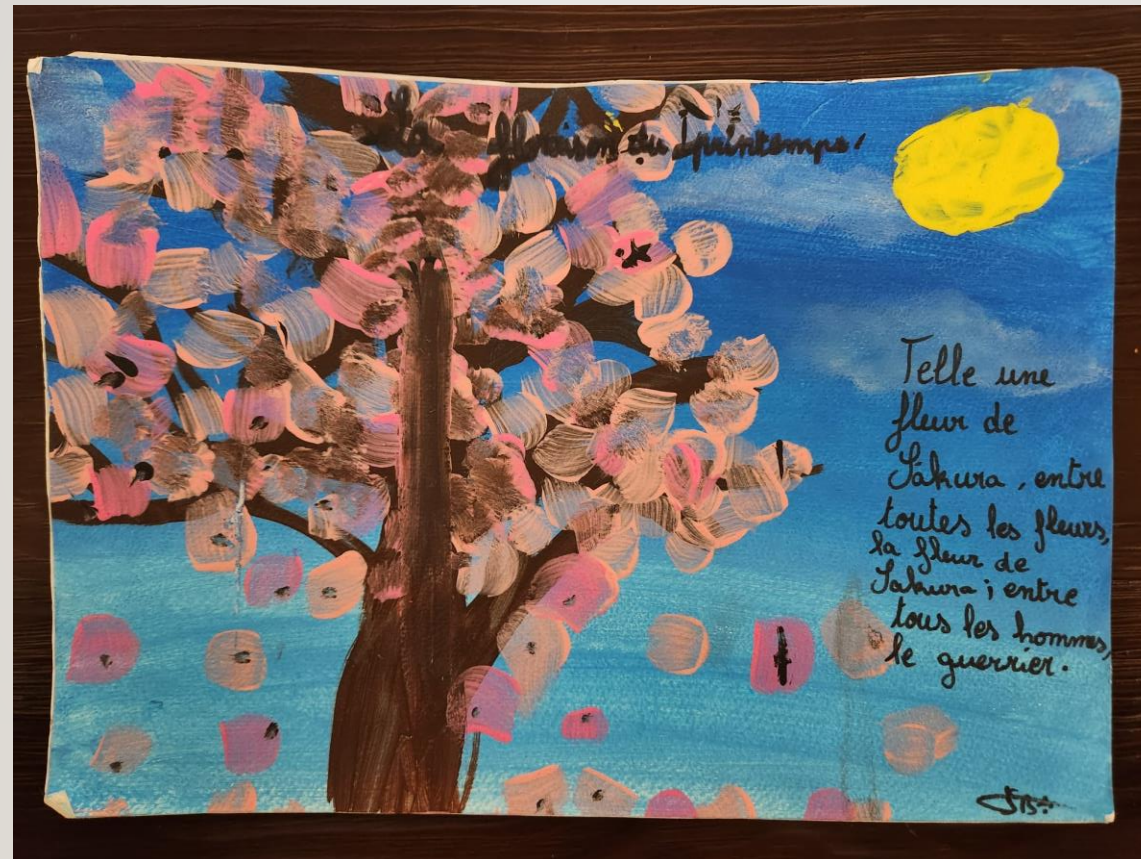 La floraison du printemps.
Telle une
fleur de
Sakura, entre
toutes les fleurs,
la fleur de
Sakura; entre
tous les hommes,
le guerrier.